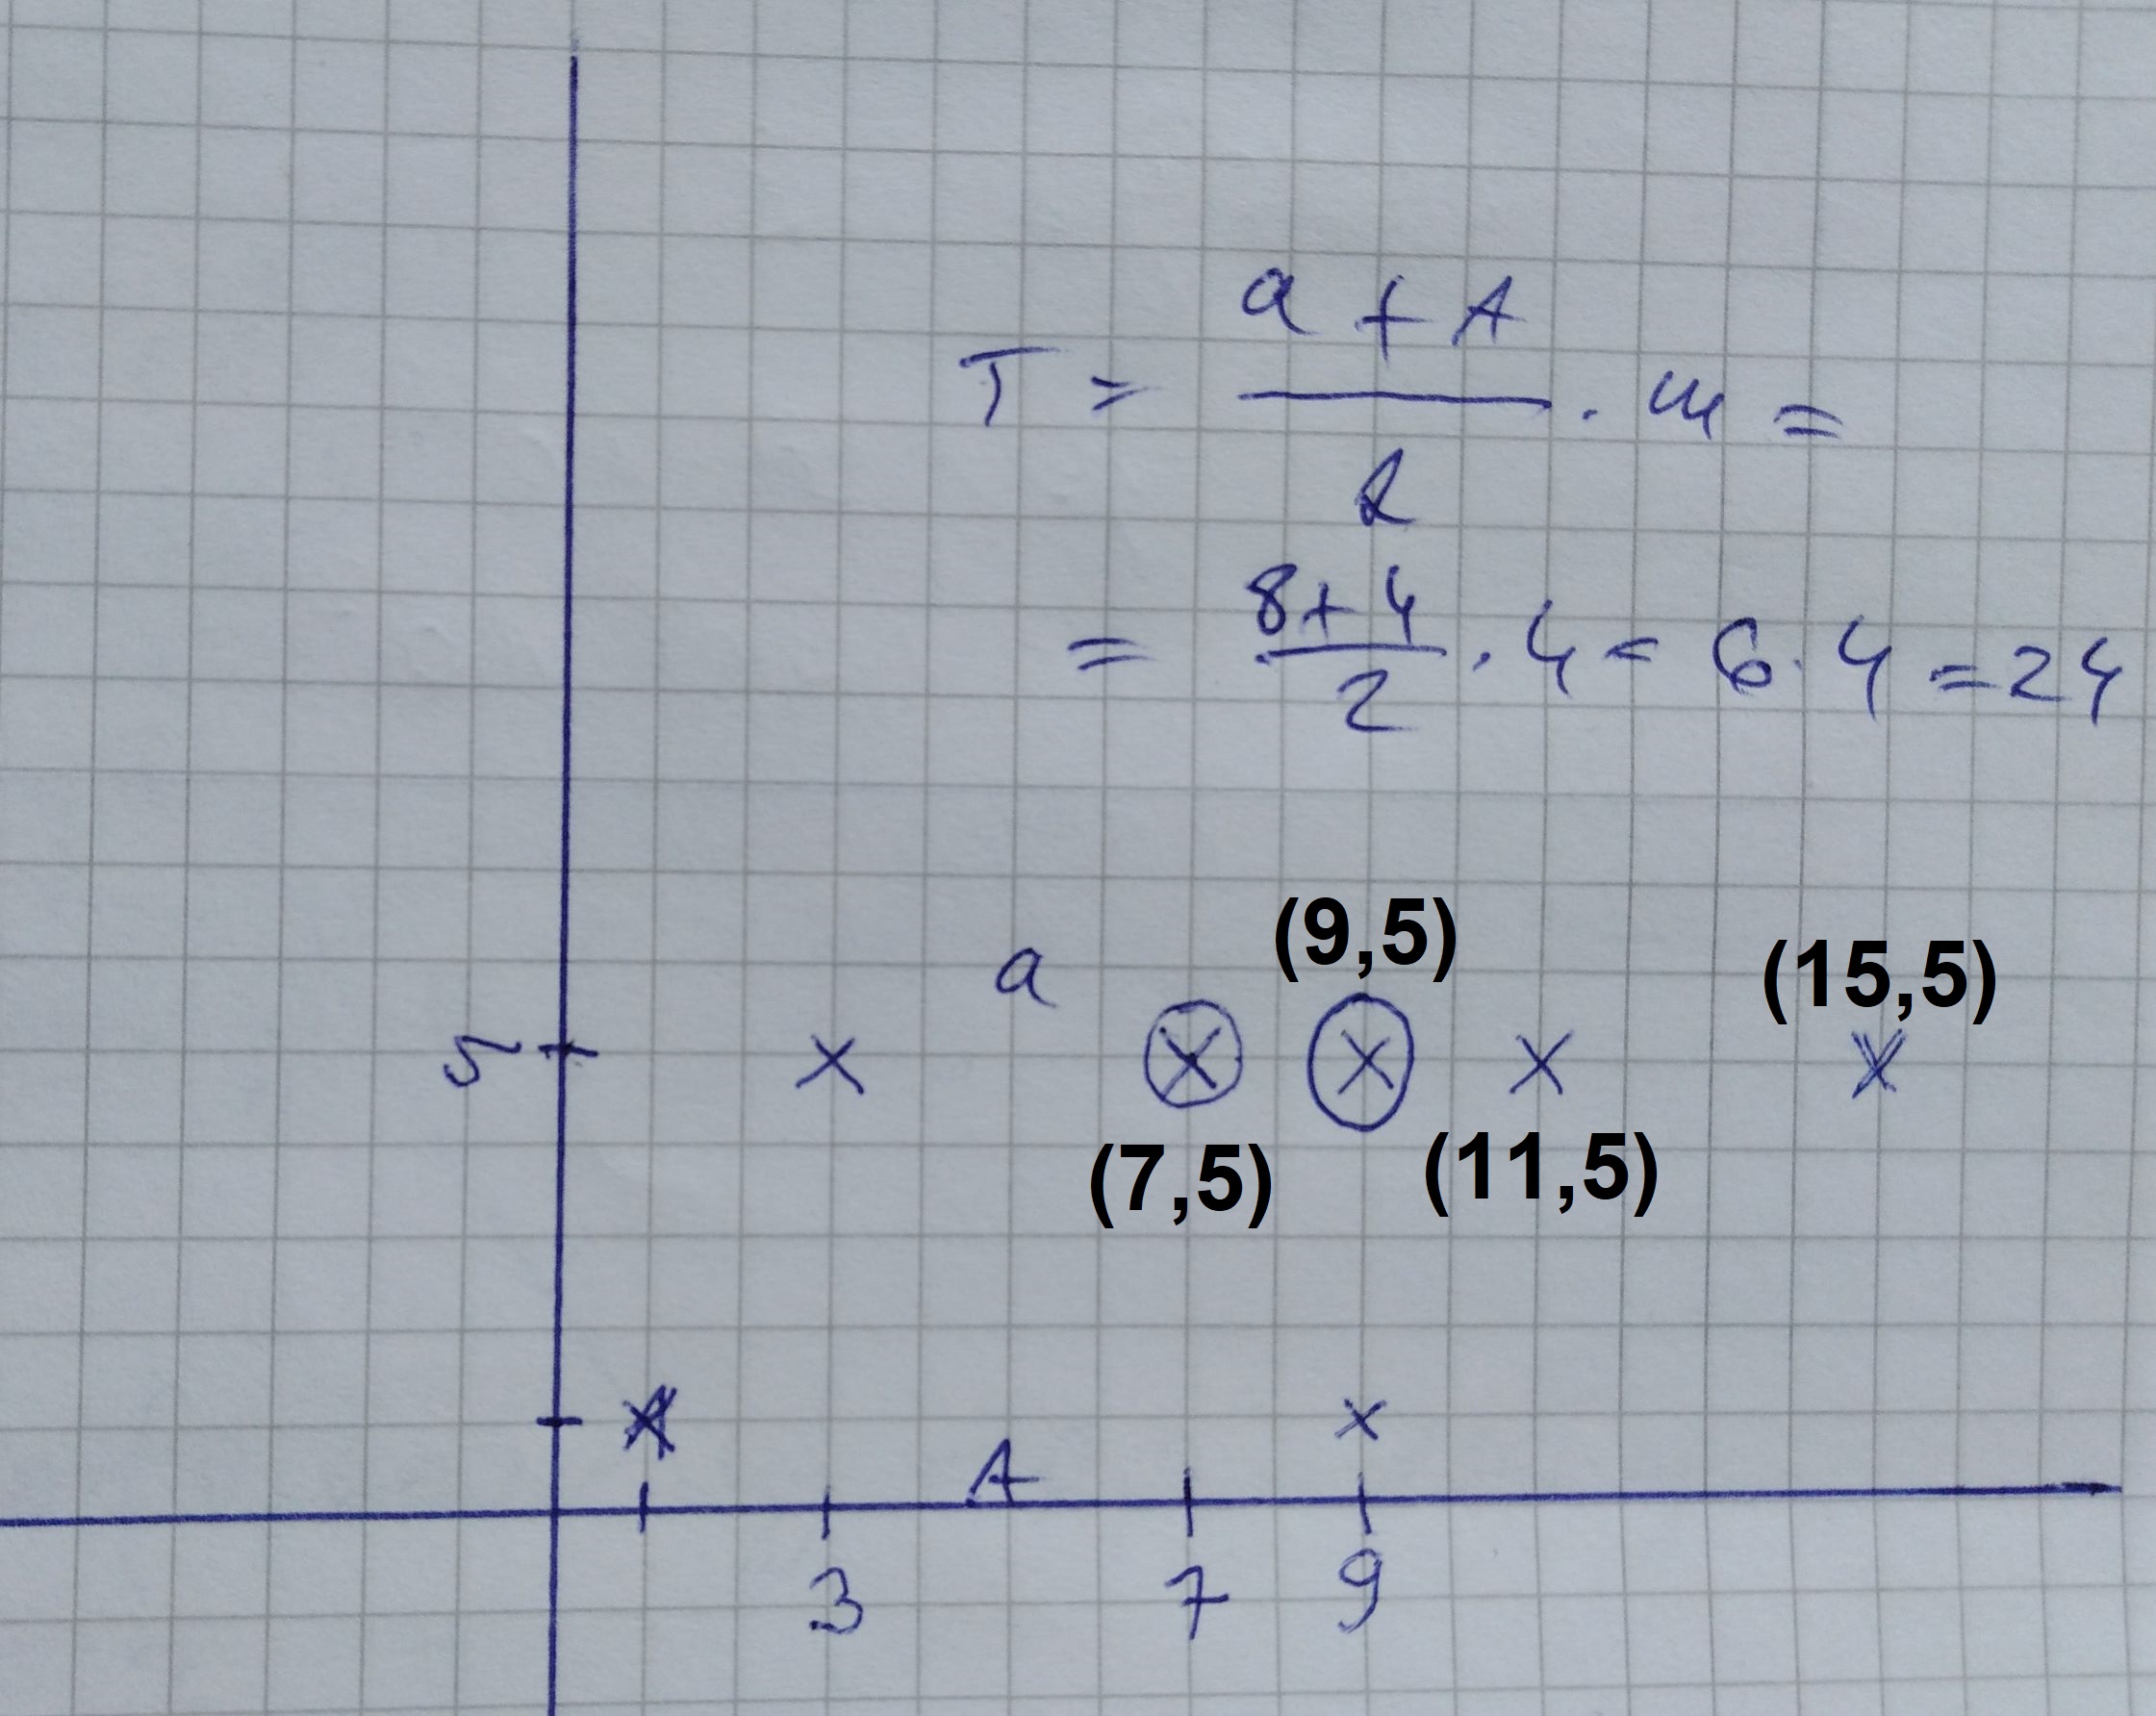 a + A
T = ―― . m =
2
= 8+4 / 2 . 4 = 6 . 4 = 24
(9,5)
a
(15,5)
5
(7,5)
(11,5)
A
3 7 9